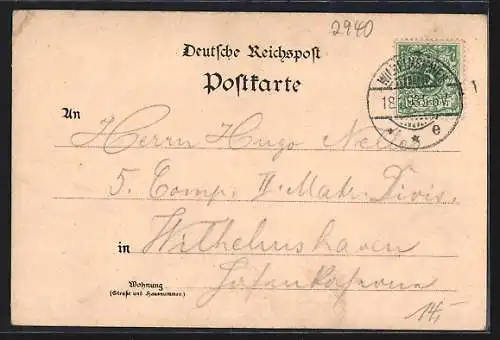 2940
Deutsche Reichspost
Postkarte
WILHELMSHAVEN
An
Herrn Hugo
5. Comp. II. Matr. Divis.
in
Wilhelmshaven
Wohnung
(Straße und Hausnummer)
14,-